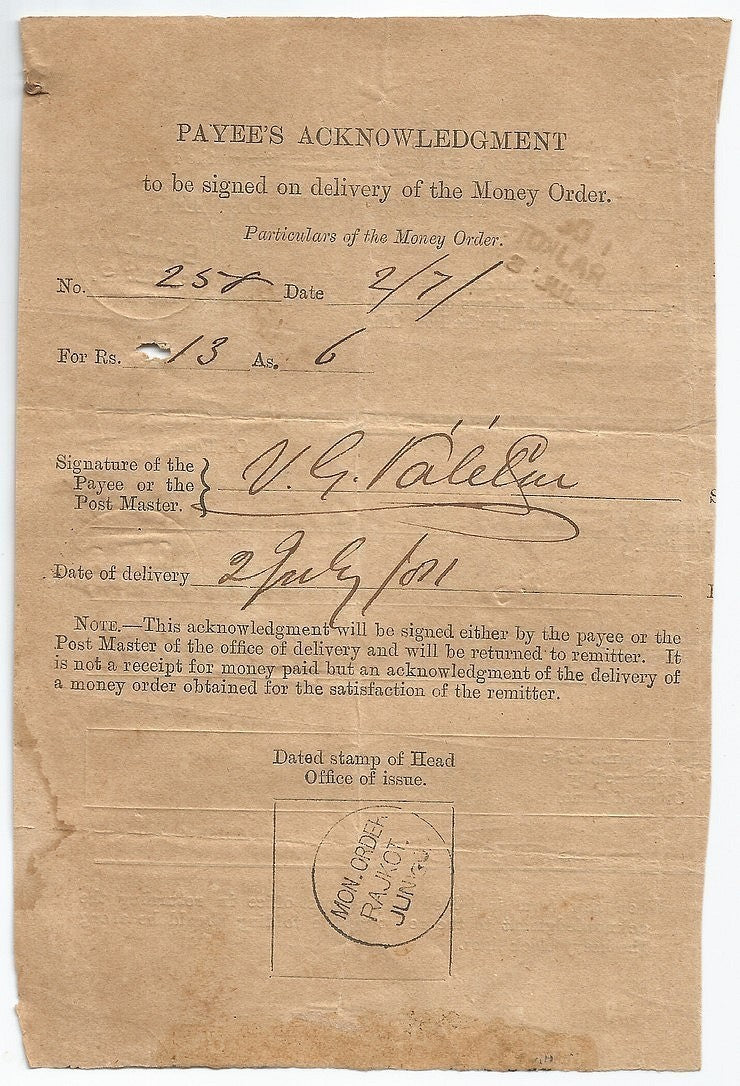 PAYEE'S ACKNOWLEDGMENT
to be signed on delivery of the Money Order.
Particulars of the Money Order.
No. 258 Date 2/7/
For Rs. 13 As. 6
Signature of the
Payee or the
Post Master.
V. G.
Date of delivery 2 July /81
NOTE.—This acknowledgment will be signed either by the payee or the
Post Master of the office of delivery and will be returned to remitter. It
is not a receipt for money paid but an acknowledgment of the delivery of
a money order obtained for the satisfaction of the remitter.
Dated stamp of Head
Office of issue.
MON. ORDER
RAJKOT.
JUN